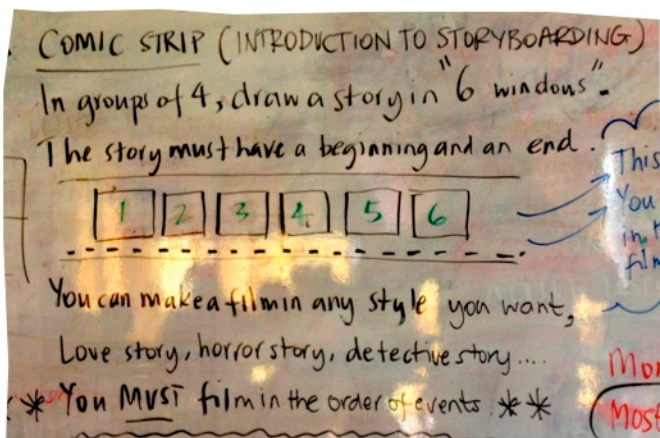 COMIC STRIP (INTRODUCTION TO STORYBOARDING)
In groups of 4, draw a story in "6 windows".
The story must have a beginning and an end.
1 2 3 4 5 6
You can make a film in any style you want,
Love story, horror story, detective story....
** You MUST film in the order of events **
This
You
Most